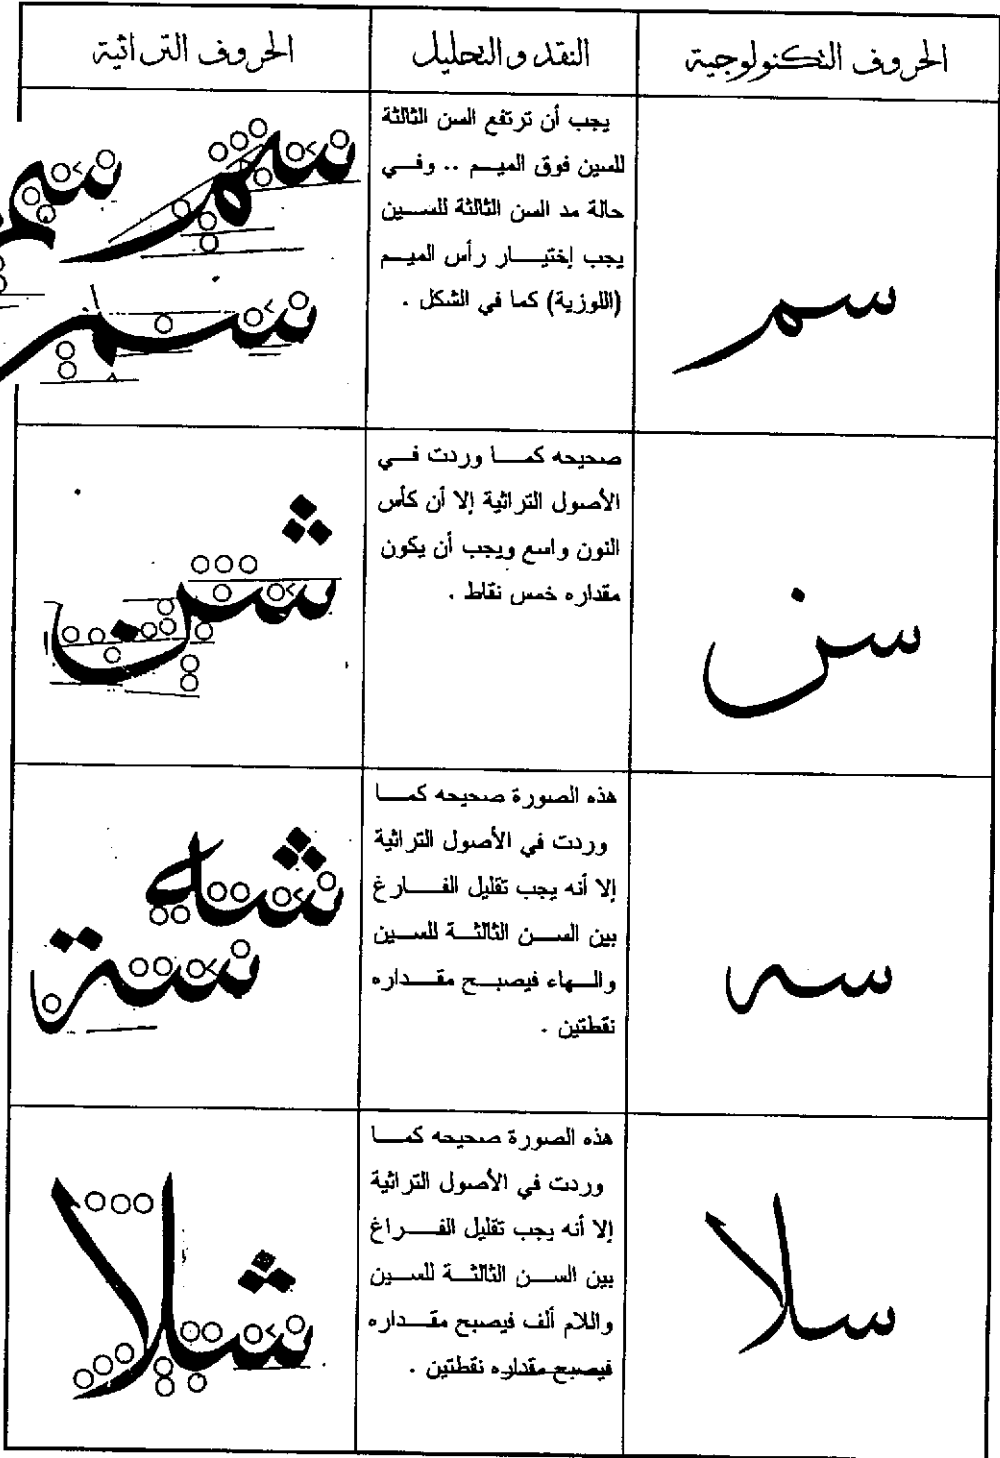 الحروف التكنولوجية
النقد والتحليل
الحروف التراثية
سمر
يجب أن ترتفع السن الثالثة
للسين فوق الميـم .. وفـي
حالة مد السن الثالثة للسـين
يجب إختيـار رأس الميـم
(اللوزية) كما في الشكل .
سمر
سمر
سن
صحيحه كمـا وردت فـي
الأصول التراثية إلا أن كأس
النون واسع ويجب أن يكون
مقداره خمس نقاط .
شن
سه
هذه الصورة صحيحه كمـا
وردت في الأصول التراثية
إلا أنه يجب تقليل الفـارغ
بين السـن الثالثـة للسـين
والـهاء فيصبـح مقـداره
نقطتين .
شه
سة
سلا
هذه الصورة صحيحه كمـا
وردت في الأصول التراثية
إلا أنه يجب تقليل الفـراغ
بين السـن الثالثـة للسـين
واللام ألف فيصبح مقـداره
فيصبح مقداره نقطتين .
شلا